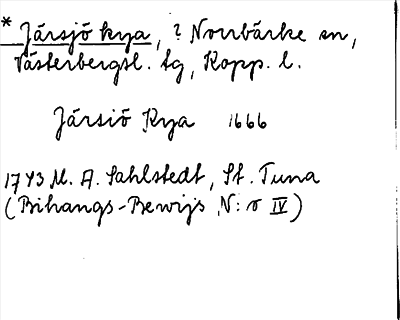 * Järsjö kya, ? Norrbärke sn,
Västerbergsl. tg, Kopp. l.
Järsiö Kya 1666
1743 M. A. Sahlstedt, St. Tuna
(Bihangs-Bewijs N:o IV)